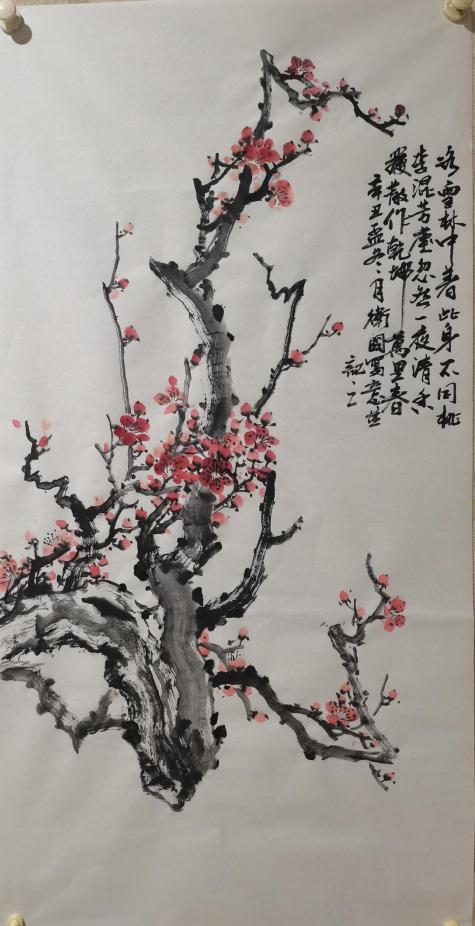 冰雪林中着此身不同桃
李混芳塵忽然一夜清香
發散作乾坤萬里春
辛丑孟冬之月衛國寫意並
記之